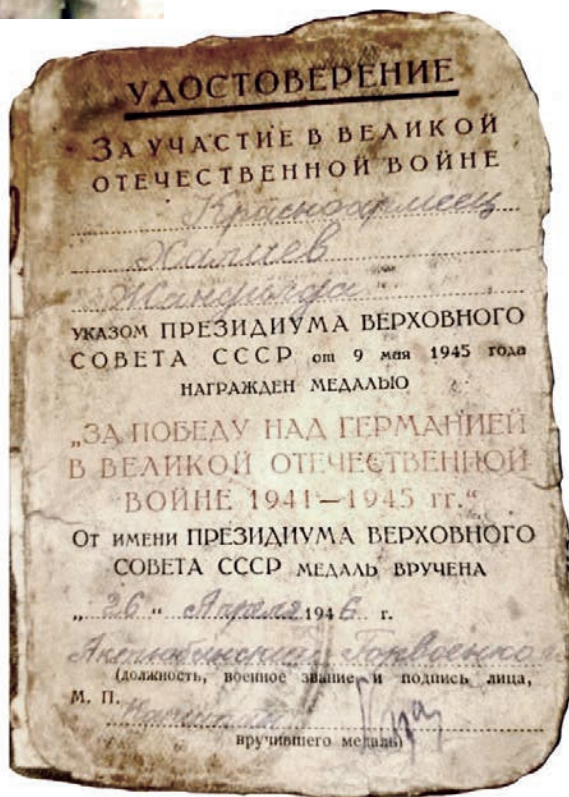 УДОСТОВЕРЕНИЕ
ЗА УЧАСТИЕ В ВЕЛИКОЙ
ОТЕЧЕСТВЕННОЙ ВОЙНЕ
Красноармеец
Халиев
УКАЗОМ ПРЕЗИДИУМА ВЕРХОВНОГО
СОВЕТА СССР от 9 мая 1945 года
НАГРАЖДЕН МЕДАЛЬЮ
„ЗА ПОБЕДУ НАД ГЕРМАНИЕЙ
В ВЕЛИКОЙ ОТЕЧЕСТВЕННОЙ
ВОЙНЕ 1941—1945 гг.“
ОТ ИМЕНИ ПРЕЗИДИУМА ВЕРХОВНОГО
СОВЕТА СССР МЕДАЛЬ ВРУЧЕНА
„ 26 “ Апреля 1946 г.
Актюбинский Горвоенко
(должность, военное звание и подпись лица,
М. П.
вручившего медаль)